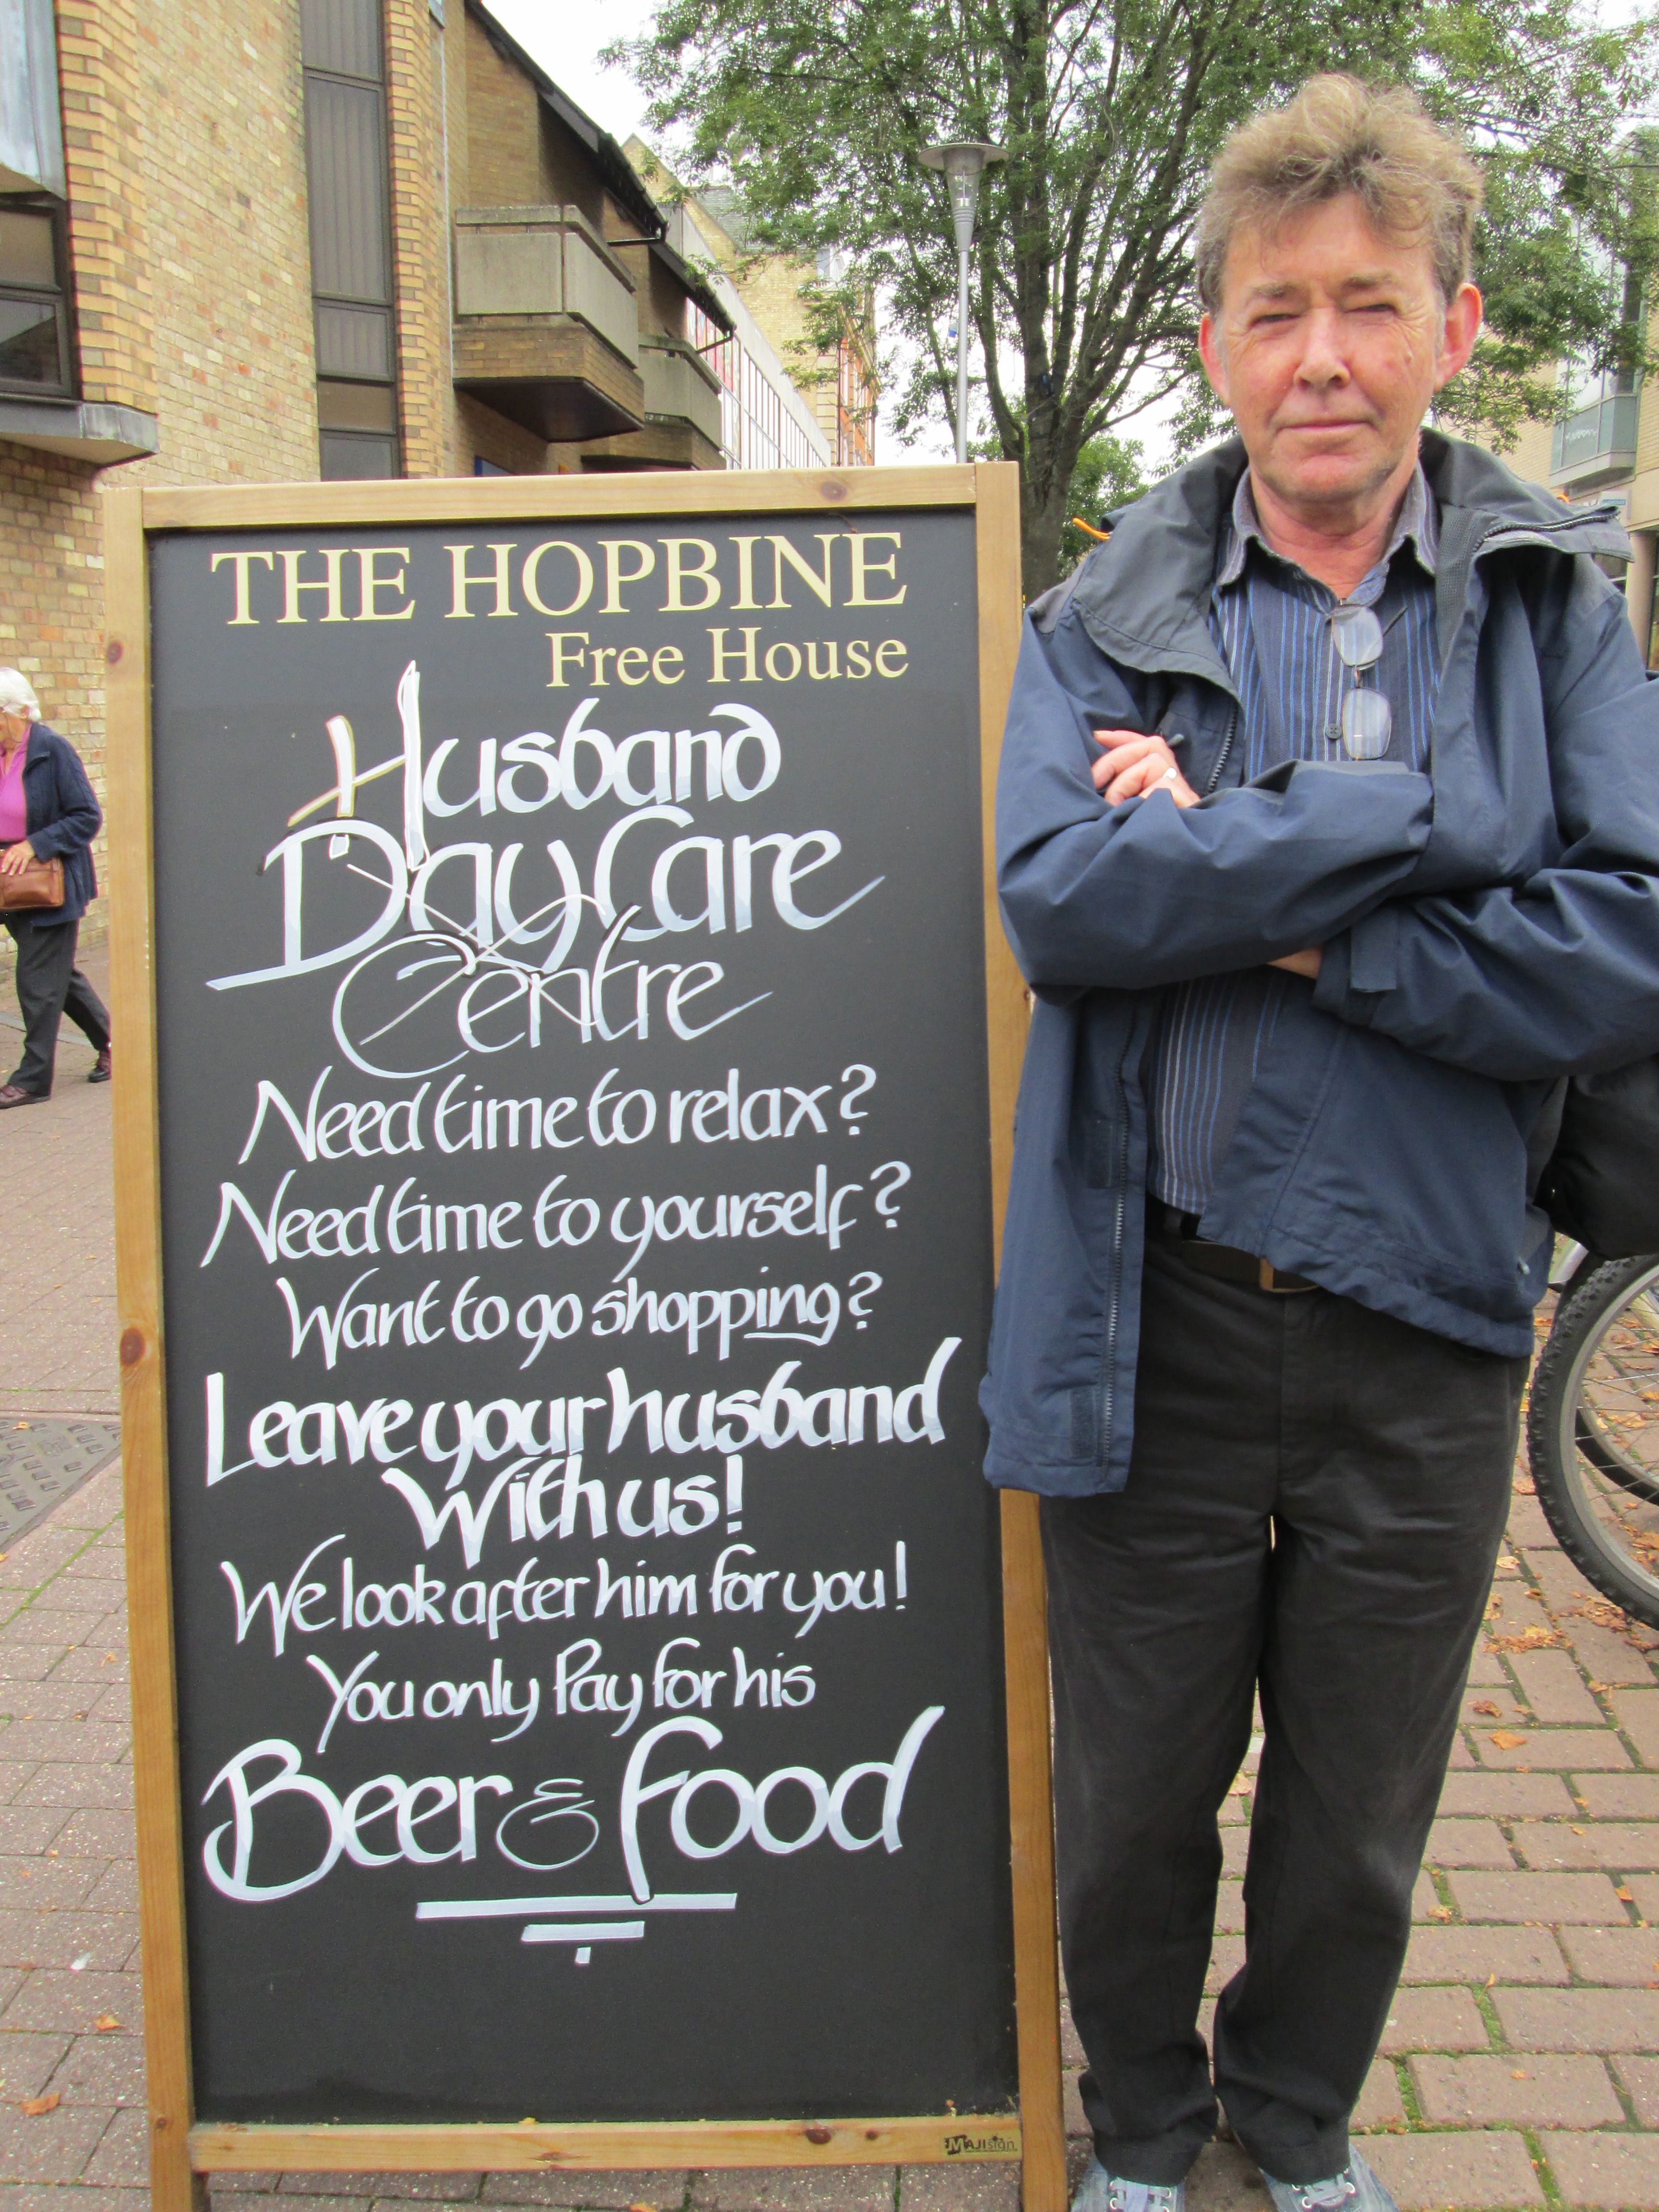 THE HOPBINE
Free House
Husband
DayCare
Centre
Need time to relax?
Need time to yourself?
Want to go shopping?
Leave your husband
With us!
We look after him for you!
You only Pay for his
Beer & food
MAJIsign